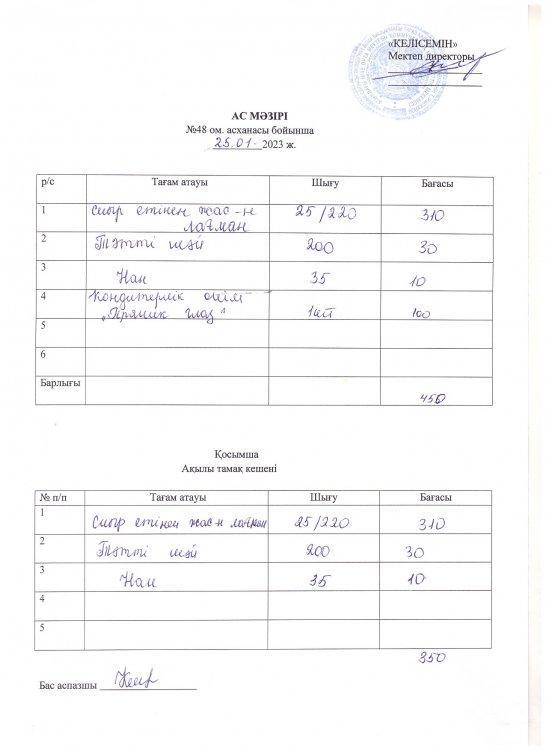 «КЕЛІСЕМІН»
Мектеп директоры
АС МӘЗІРІ
№48 ом. асханасы бойынша
25.01. 2023 ж.
р/с Тағам атауы Шығу Бағасы
1 Сиыр етінен жас-н лағман 25/220 310
2 Тәтті шәй 200 30
3 Нан 35 10
4 Кондитерлік өнім "Пряник глаз" 1шт 100
5
6
Барлығы 450
Қосымша
Ақылы тамақ кешені
№ п/п Тағам атауы Шығу Бағасы
1 Сиыр етінен жас-н лағман 25/220 310
2 Тәтті шәй 200 30
3 Нан 35 10
4
5
350
Бас аспазшы